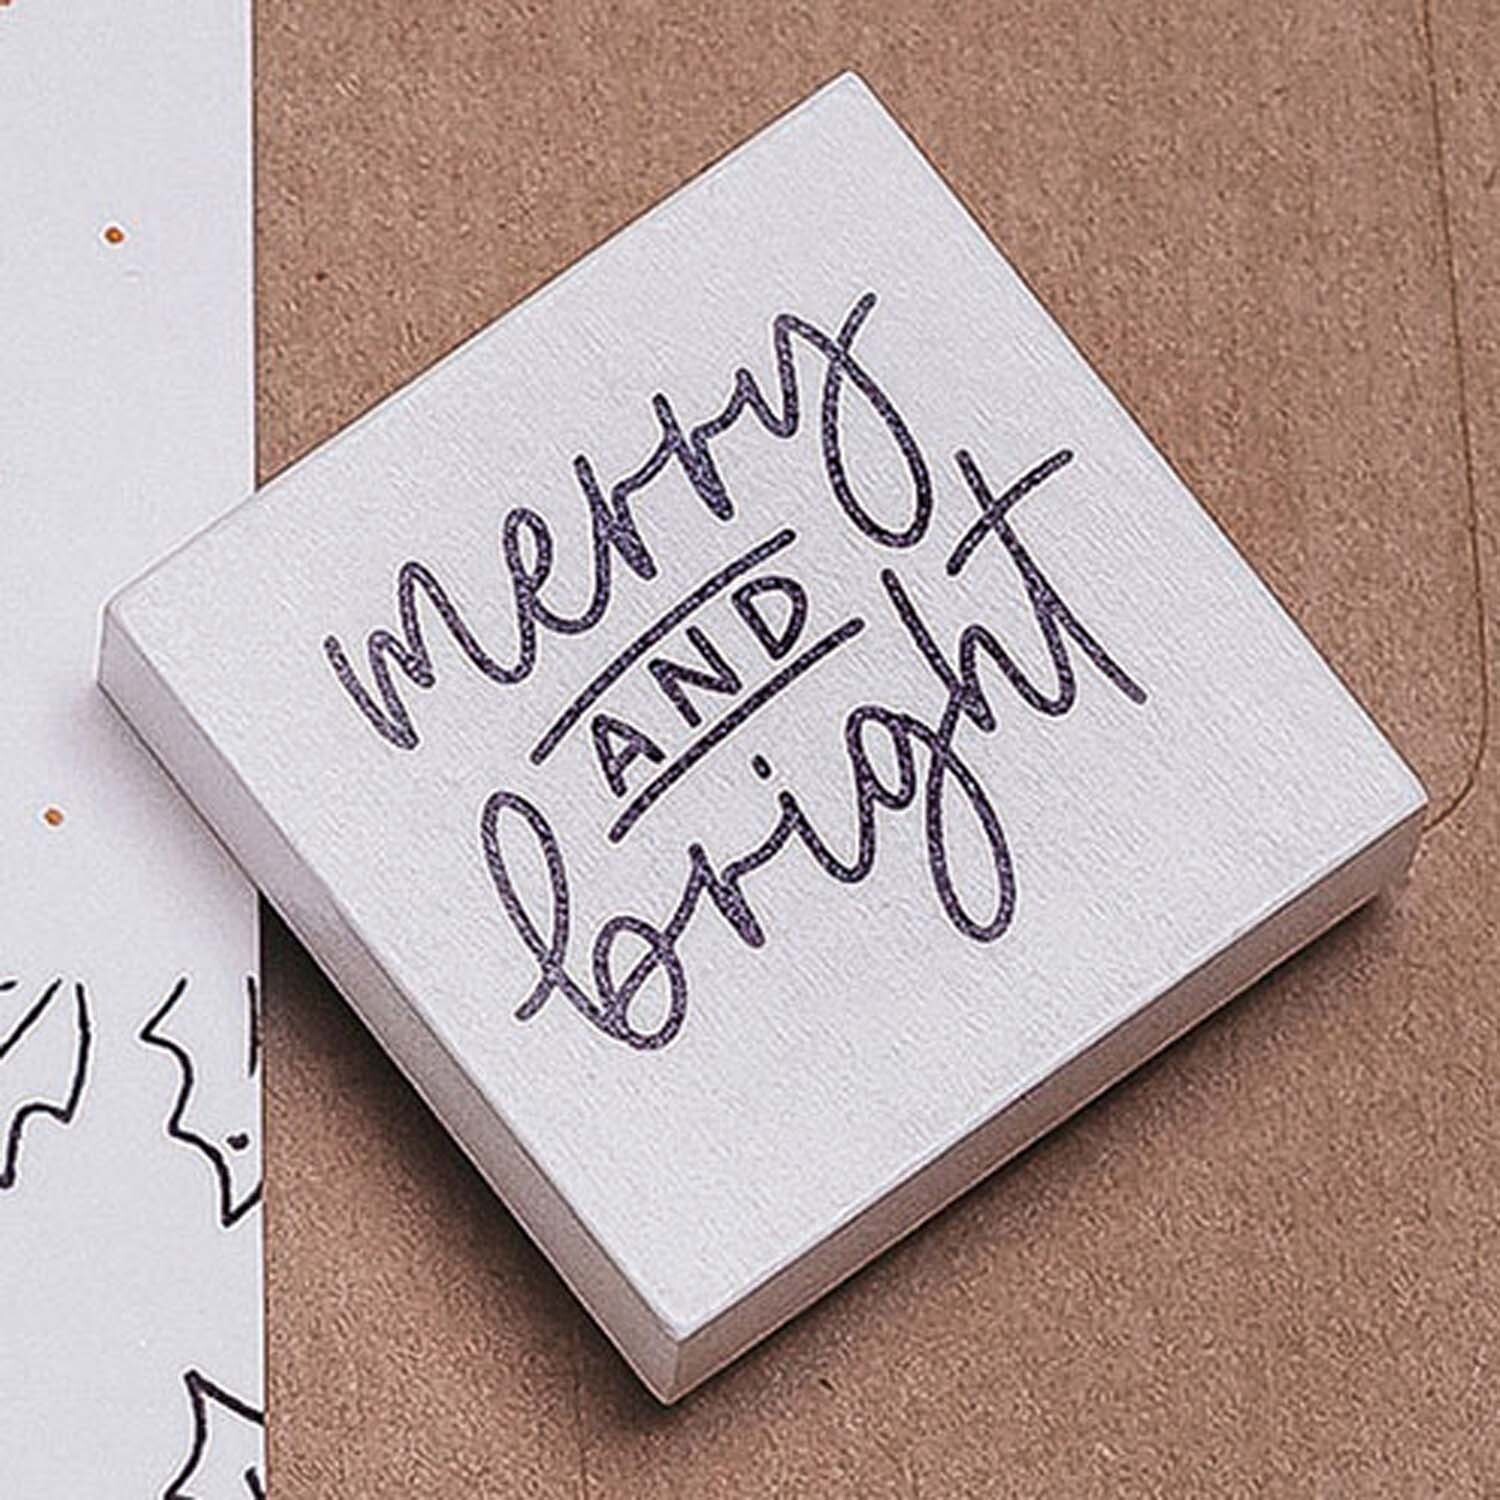 merry
AND
bright